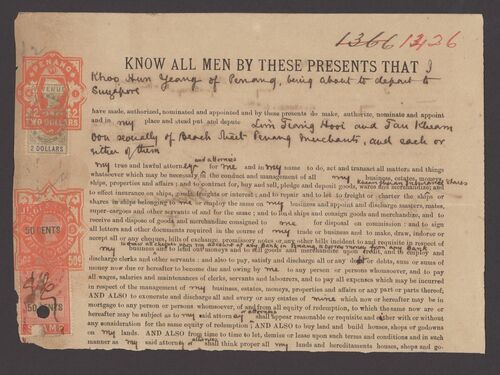 1366 13426
KNOW ALL MEN BY THESE PRESENTS THAT I
Khoo Hun Yeang of Penang, being about to depart to
Singapore
have made, authorized, nominated and appointed and by these presents do make, authorize, nominate and appoint
and in my place and stead put and depute Lim Teong Hooi and Tan Kheam
severally of Beach Street Penang Merchants, and each or
either of them
and attorneys
my true and lawful attorneys for me and in my name to do, and transact all matters and things
whatsoever which may be necessary in the conduct and management of all my business, estates, moneys
shares
ships, properties and affairs; and to contract for, buy and sell, pledge and deposit goods, wares and merchandize; and
to effect insurance on ships, goods, freights or interest; and to repair and to let to freight or charter the ships or
shares in ships belonging to me to employ the same on my business and appoint and discharge masters, mates,
super-cargoes and other servants of and for the same; and to load ships and consign goods and merchandize, and to
receive and dispose of goods and merchandize consigned to me for disposal on commission: and to sign
all letters and other documents required in the course of my trade or business and to make, draw, indorse or
accept all or any cheques, bills of exchange, promissory notes or any other bills incident to and requisite in respect of
my business goods and merchandize upon credit, and to employ and
discharge clerks and other servants: and also to pay, satisfy and discharge all or any debts, sums or sums of
money now due or hereafter to become due and owing by me to any person or persons whomsoever, and to pay
all wages, salaries and maintenances of clerks, servants and labourers, and to pay all expenses which may be incurred
in respect of the management of my business, estates, moneys, properties and affairs or any part or parts thereof;
AND ALSO to exonerate and discharge all and every or any estates of mine which now or hereafter may be in
mortgage to any person or persons whomsoever, and from all equity of redemption, to which the same now are or
hereafter may be subject as to my said attorney or attorneys shall appear reasonable or requisite and either with or without
any consideration for the same equity of redemption; AND ALSO to buy and build houses, shops or godowns
on my lands. AND ALSO from time to time to let, demise or lease upon such terms and conditions and in such
manner as my said attorney or attorneys shall think proper all my lands and hereditaments houses, shops and go-
PENANG
$2 $2
TWO DOLLARS
REVENUE
2 DOLLARS
50 CENTS
50 CENTS